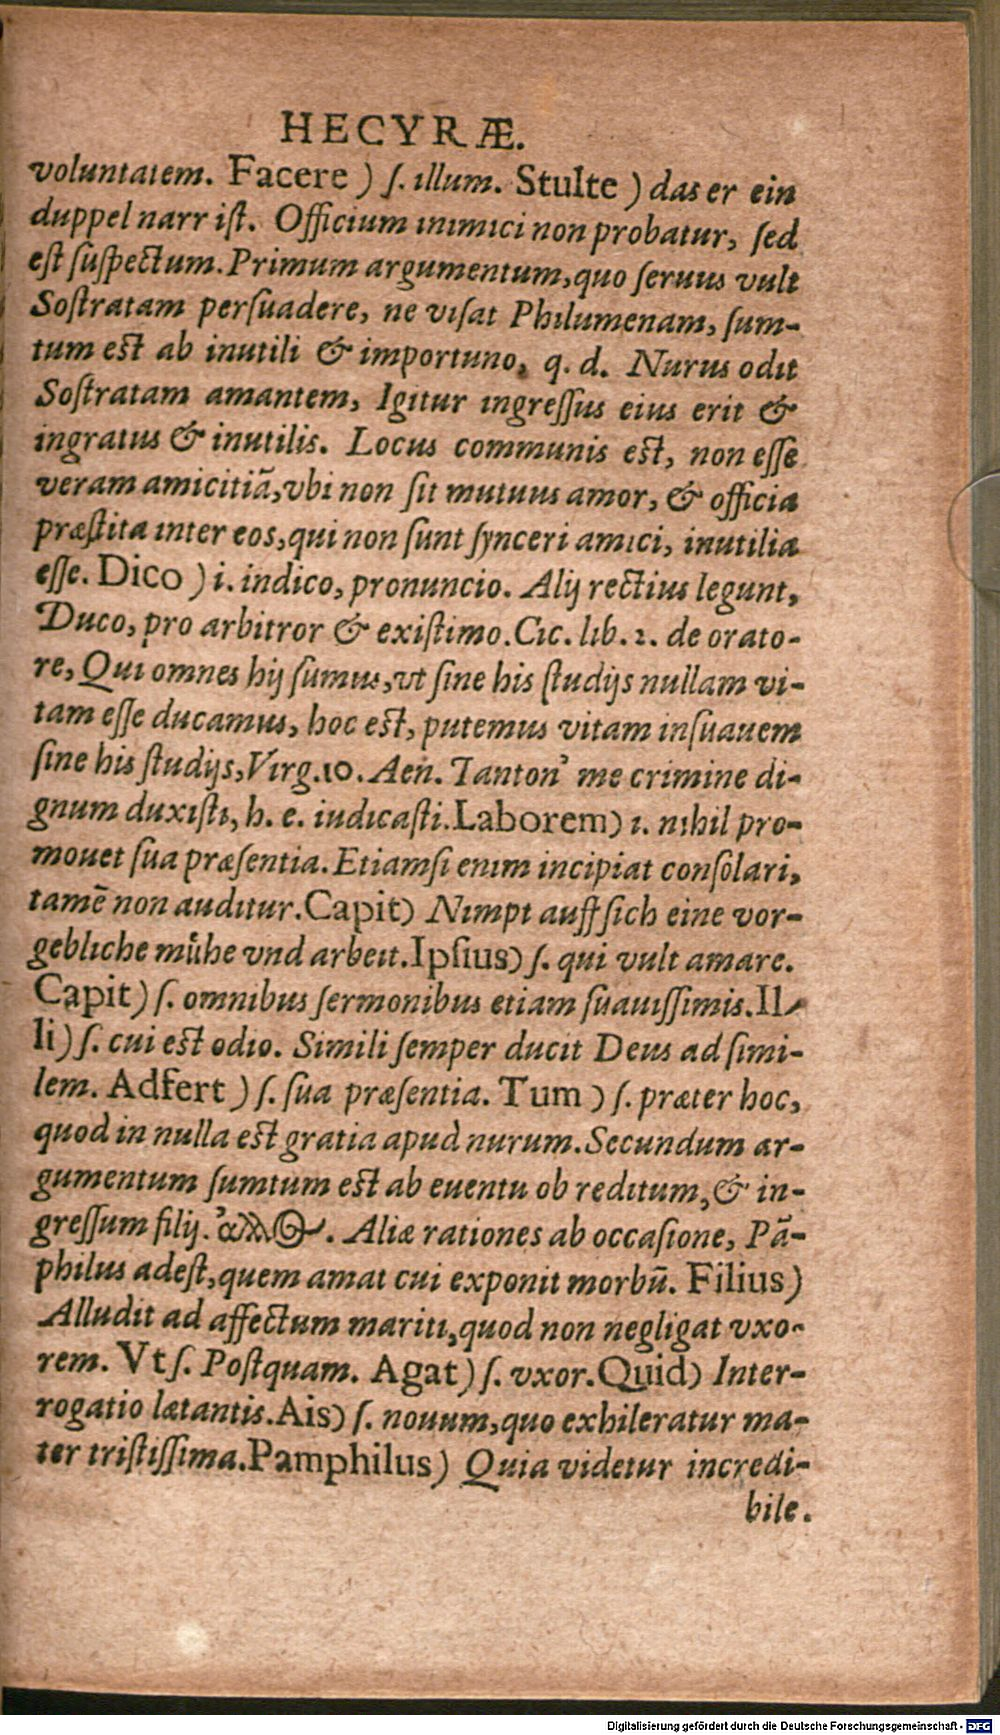 HECYRÆ.
voluntatem. Facere ) ſ. illum. Stulte ) das er ein
duppel narr iſt. Officium inimici non probatur, ſed
eſt ſuſpectum. Primum argumentum, quo ſeruus vult
Soſtratam perſuadere, ne viſat Philumenam, ſum-
tum eſt ab inutili & importuno, q. d. Nurus odit
Soſtratam amantem, Igitur ingreſſus eius erit &
ingratus & inutilis. Locus communis eſt, non eſſe
veram amicitiã, vbi non ſit mutuus amor, & officia
præſtita inter eos, qui non ſunt ſynceri amici, inutilia
eſſe. Dico ) i. indico, pronuncio. Alij rectius legunt,
Duco, pro arbitror & exiſtimo. Cic. lib. 2. de orato-
re, Qui omnes hij ſumus, vt ſine his ſtudijs nullam vi-
tam eſſe ducamus, hoc eſt, putemus vitam inſuauem
ſine his ſtudijs, Virg. 10. Aen. Tanton' me crimine di-
gnum duxiſti, h. e. iudicaſti. Laborem) i. nihil pro-
mouet ſua præſentia. Etiamſi enim incipiat conſolari,
tamẽ non auditur. Capit) Nimpt auff ſich eine vor-
gebliche muͤhe vnd arbeit. Ipſius) ſ. qui vult amare.
Capit ) ſ. omnibus ſermonibus etiam ſuauiſſimis. Il-
li ) ſ. cui eſt odio. Simili ſemper ducit Deus ad ſimi-
lem. Adfert ) ſ. ſua præſentia. Tum ) ſ. præter hoc,
quod in nulla eſt gratia apud nurum. Secundum ar-
gumentum ſumtum eſt ab euentu ob reditum, & in-
greſſum filij. Aliæ rationes ab occaſione, Pã-
philus adeſt, quem amat cui exponit morbũ. Filius)
Alludit ad affectum mariti, quod non negligat vxo-
rem. Vt ſ. Poſtquam. Agat) ſ. vxor. Quid) Inter-
rogatio lætantis. Ais) ſ. nouum, quo exhileratur ma-
ter triſtiſſima. Pamphilus) Quia videtur incredi-
bile.
Digitalisierung gefördert durch die Deutsche Forschungsgemeinschaft - DFG